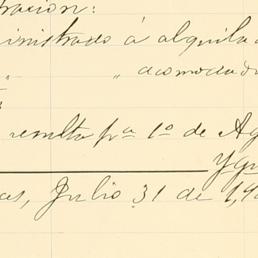 tracion:
inistrado á alquila
" " acomodad
resulta pa 1º de Ag
Ygu
as, Julio 31 de 1,9